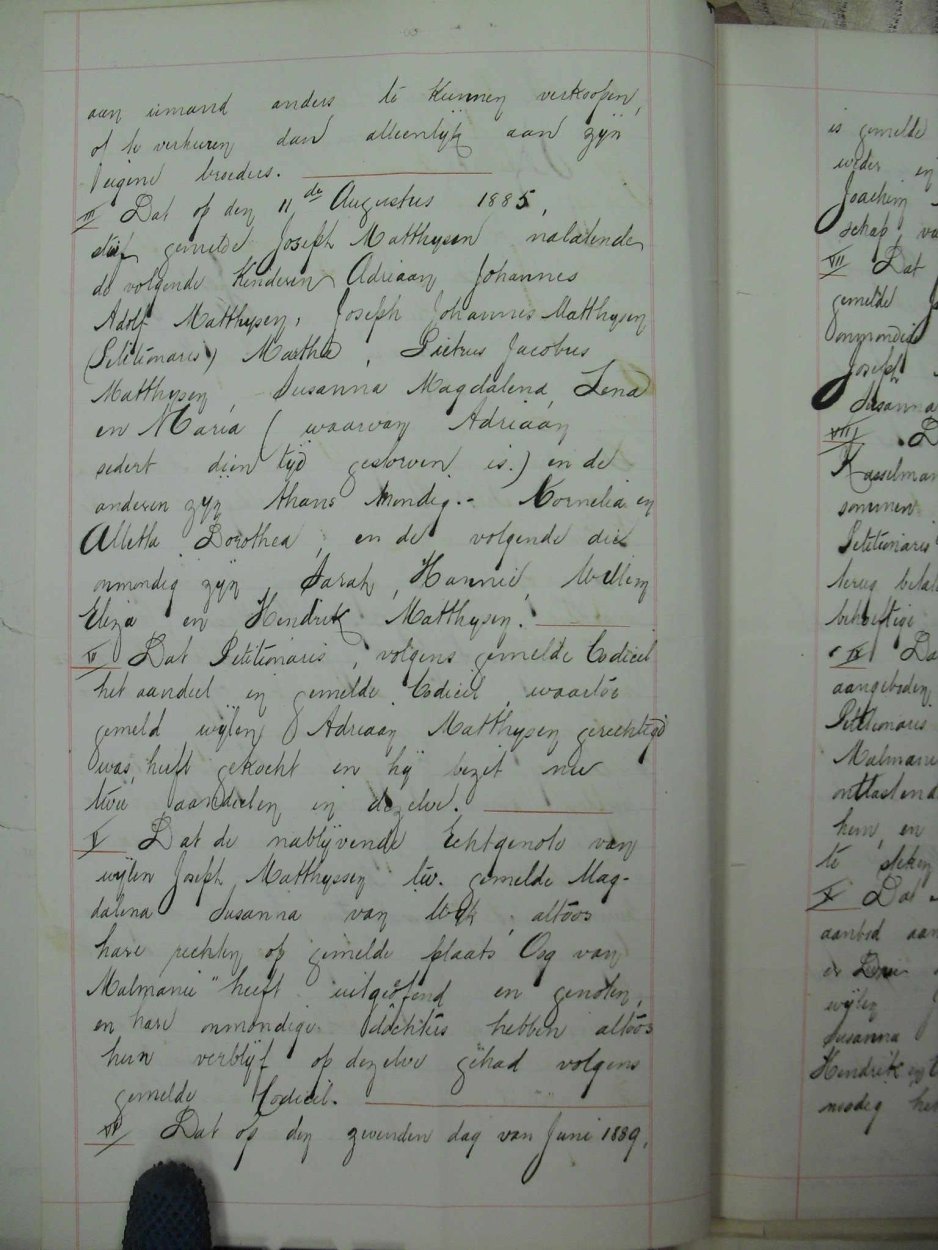 aan iemand anders te kunnen verkoopen,
of te verhuren dan alleenlyk aan zyn
eigene broeders.
III Dat op den 11de Augustus 1885,
stierf gemelde Joseph Matthysen nalatende
de volgende Kinderen Adriaan Johannes
Adolf Matthysen, Joseph Johannes Matthysen
(Petitionaris) Martha, Pietrus Jacobus
Matthysen, Susanna Magdalena, Lena
en Maria (waarvan Adriaan
sedert dien tyd gestorven is.) en de
anderen zyn thans mondig.- Kornelia en
Alletta Dorothea, en de volgende die
onmondig zyn, Sarah, Hannie, Willem
Eliza en Hendrik Matthysen.
IV Dat Petitionaris, volgens gemelde Codicil
het aandeel in gemelde Codicil waartoe
gemeld wylen Adriaan Matthysen gerechtigd
was, heeft gekocht en hy bezit nu
twee aandeelen in dezelve.
V Dat de nablyvende Echtgenote van
wylen Joseph Matthyssen tw. gemelde Mag-
dalena Susanna van Wyk, altoos
hare rechten op gemelde plaats Oog van
Malmanie" heeft uitgeöfend en genoten,
en hare onmondige dochters hebben altoos
hun verblyf op dezelve gehad volgens
gemelde Codicil.
VI Dat op den zevenden dag van Juni 1889,
is gemelde
weder en
Joachim
schap, va
VII Dat
gemelde J
onmondig
Joseph
Susanna
VIII D
Kasselman
sommen
Petitionaris
terug betal
behoeftige
IX Da
aangeboden
Petitionaris
Malmanie
ontlastend
hem, en
te steken
X Dat
aanbod aan
de Drie
wylen
Susanna
Hendrik en
noodig he